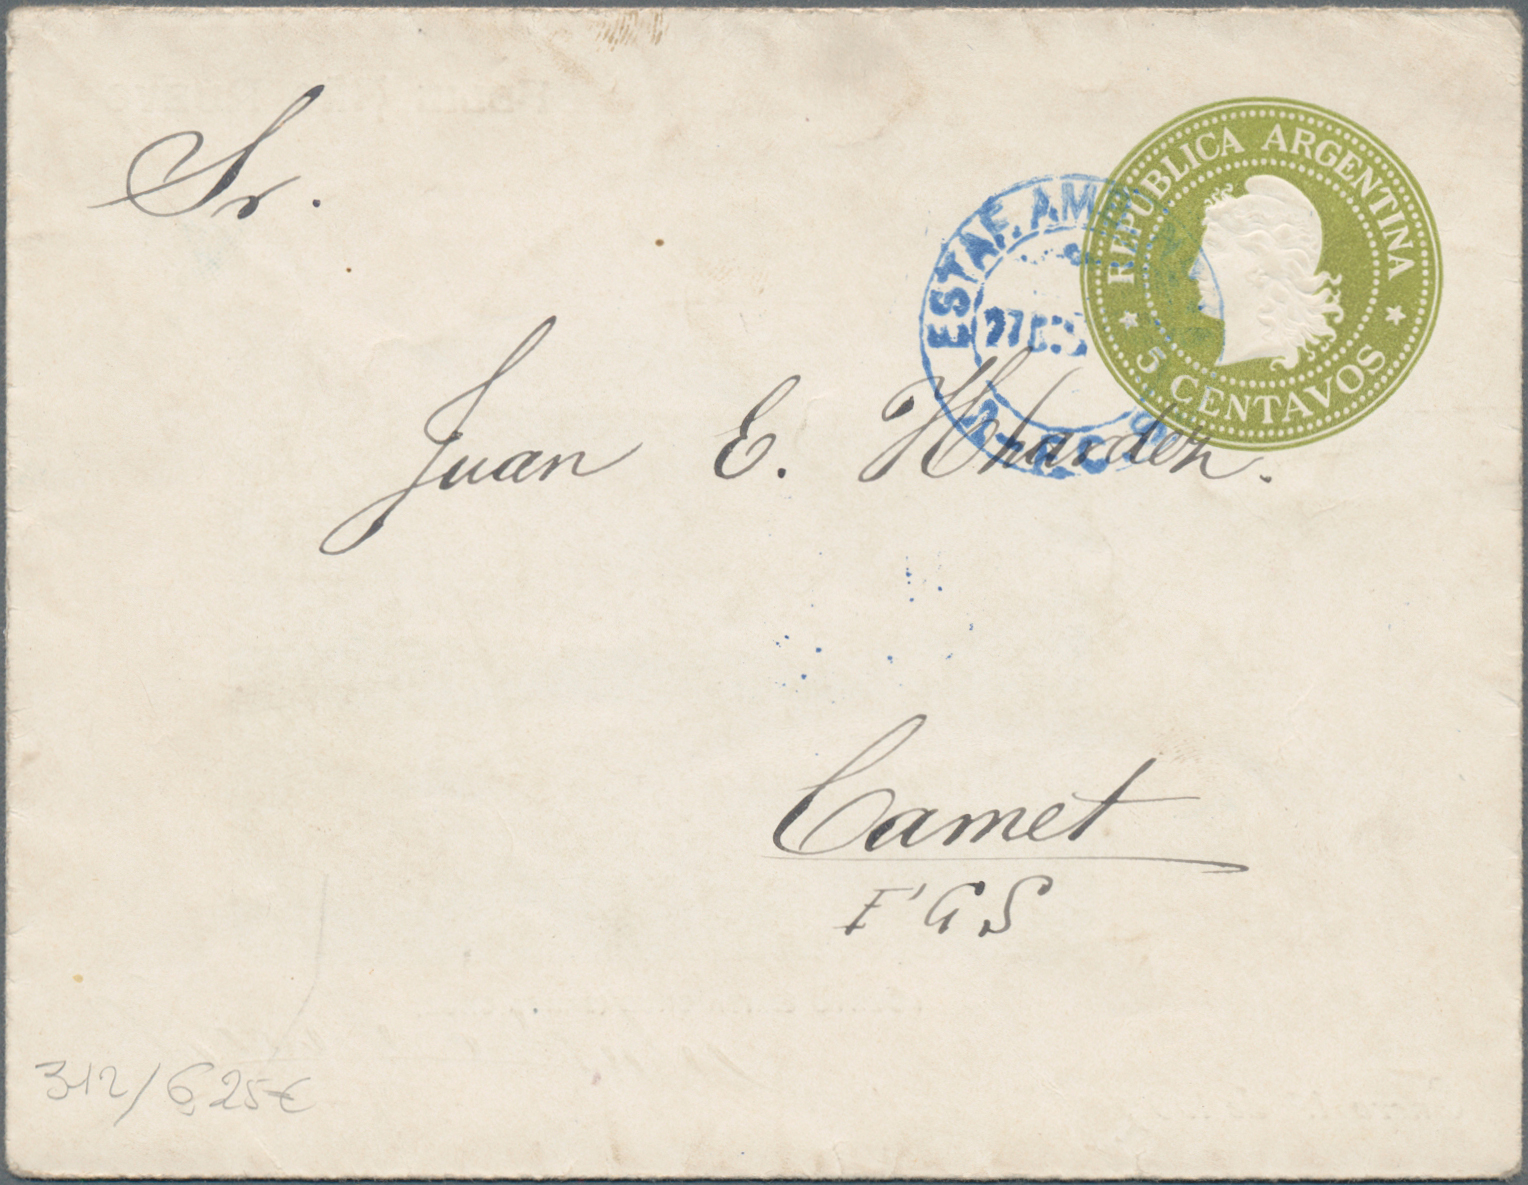 Sr.
REPUBLICA ARGENTINA
5 CENTAVOS
ESTAF. AMB
27 DC
Juan E.
Camet
F'GS
312/6,25€